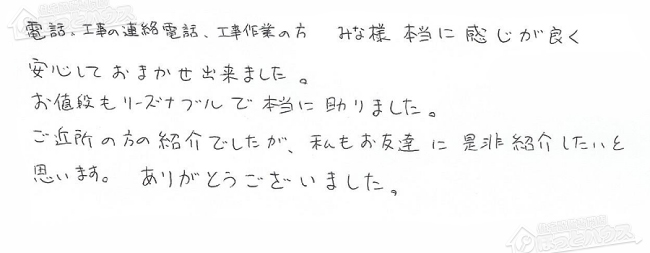 電話、工事の連絡電話、工事作業の方　みな様 本当に 感じが良く
安心して おまかせ出来ました。
お値段も リーズナブルで 本当に 助りました。
ご近所の方の紹介でしたが、私もお友達に 是非紹介したいと
思います。　ありがとうございました。